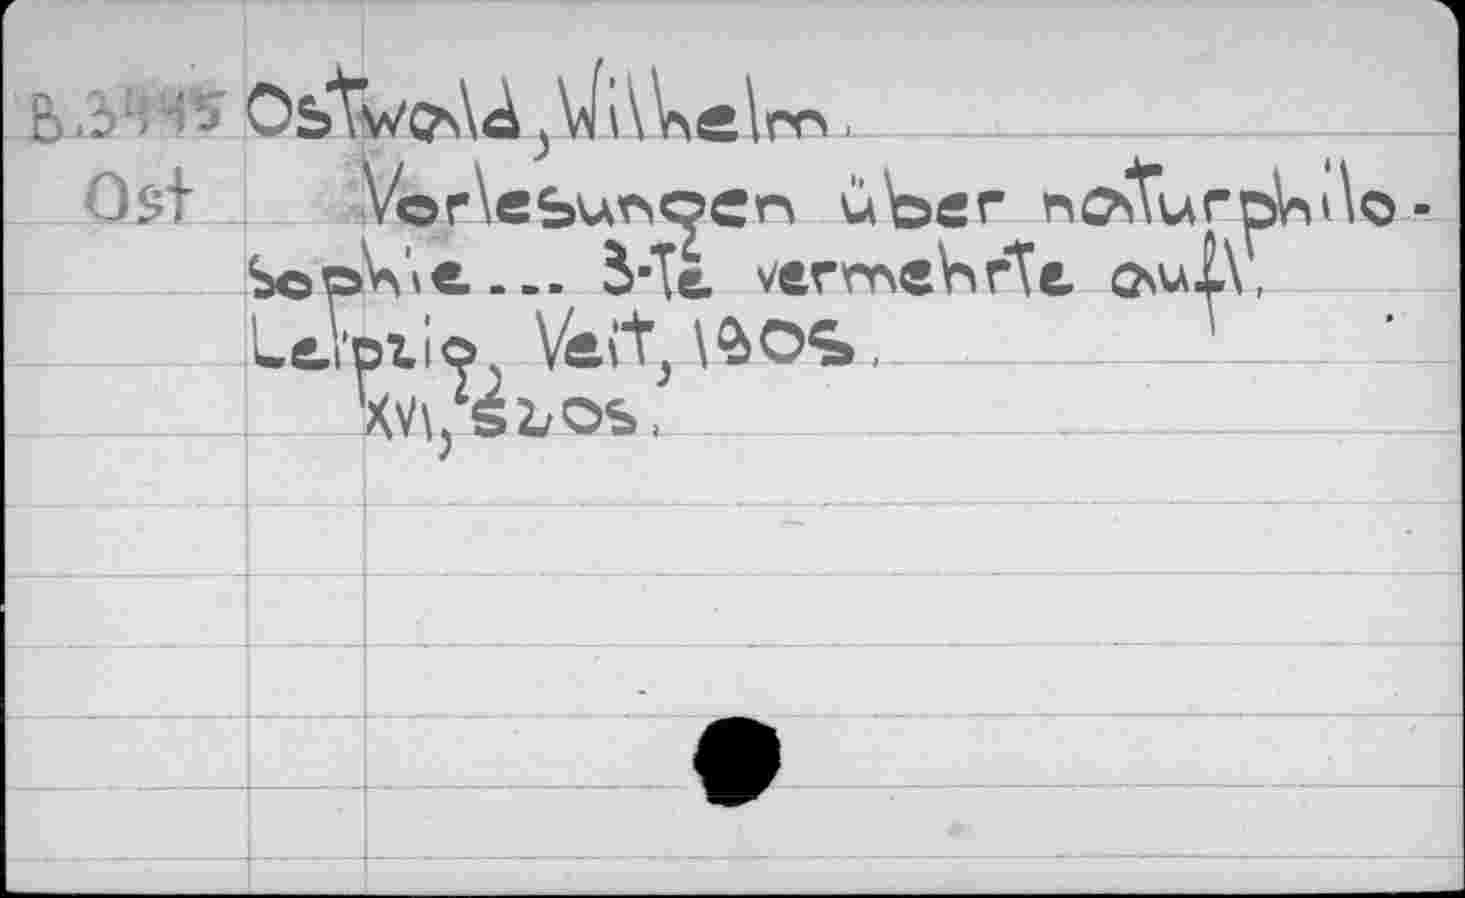 B.3445 Ostwald, Wilhelm.
Ost Vorlesungen über naturphilo-
sophie.... 3-te vermehrte aufl.
Leipzig, Veit, 1905.
XVI, s